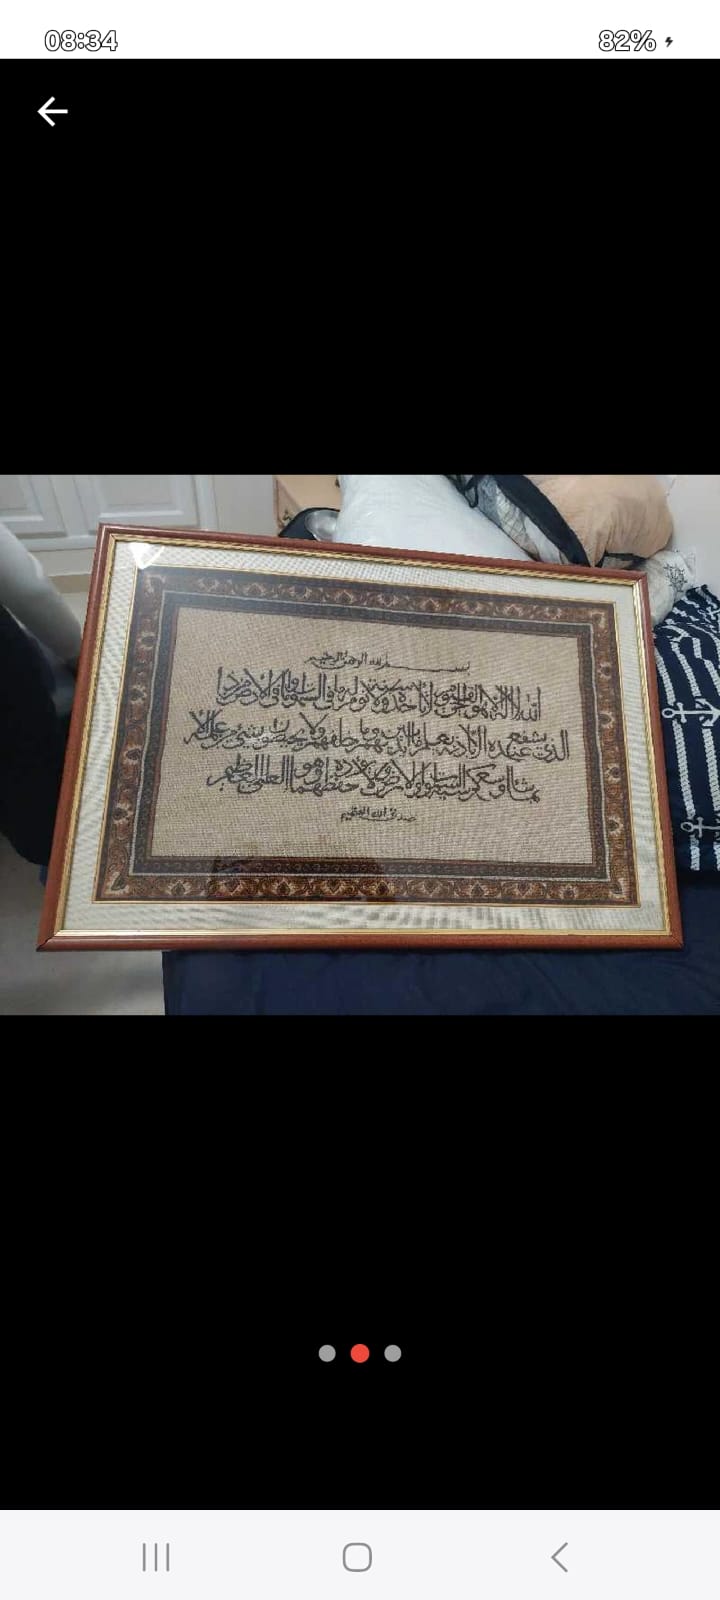 08:34
82%
بسم الله الرحمن الرحيم
الله لا إله إلا هو الحي القيوم لا تأخذه سنة ولا نوم له ما في السموات وما في الأرض من ذا
الذي يشفع عنده إلا بإذنه يعلم ما بين أيديهم وما خلفهم ولا يحيطون بشيء من علمه إلا
بما شاء وسع كرسيه السموات والأرض ولا يؤده حفظهما وهو العلي العظيم
صدق الله العظيم